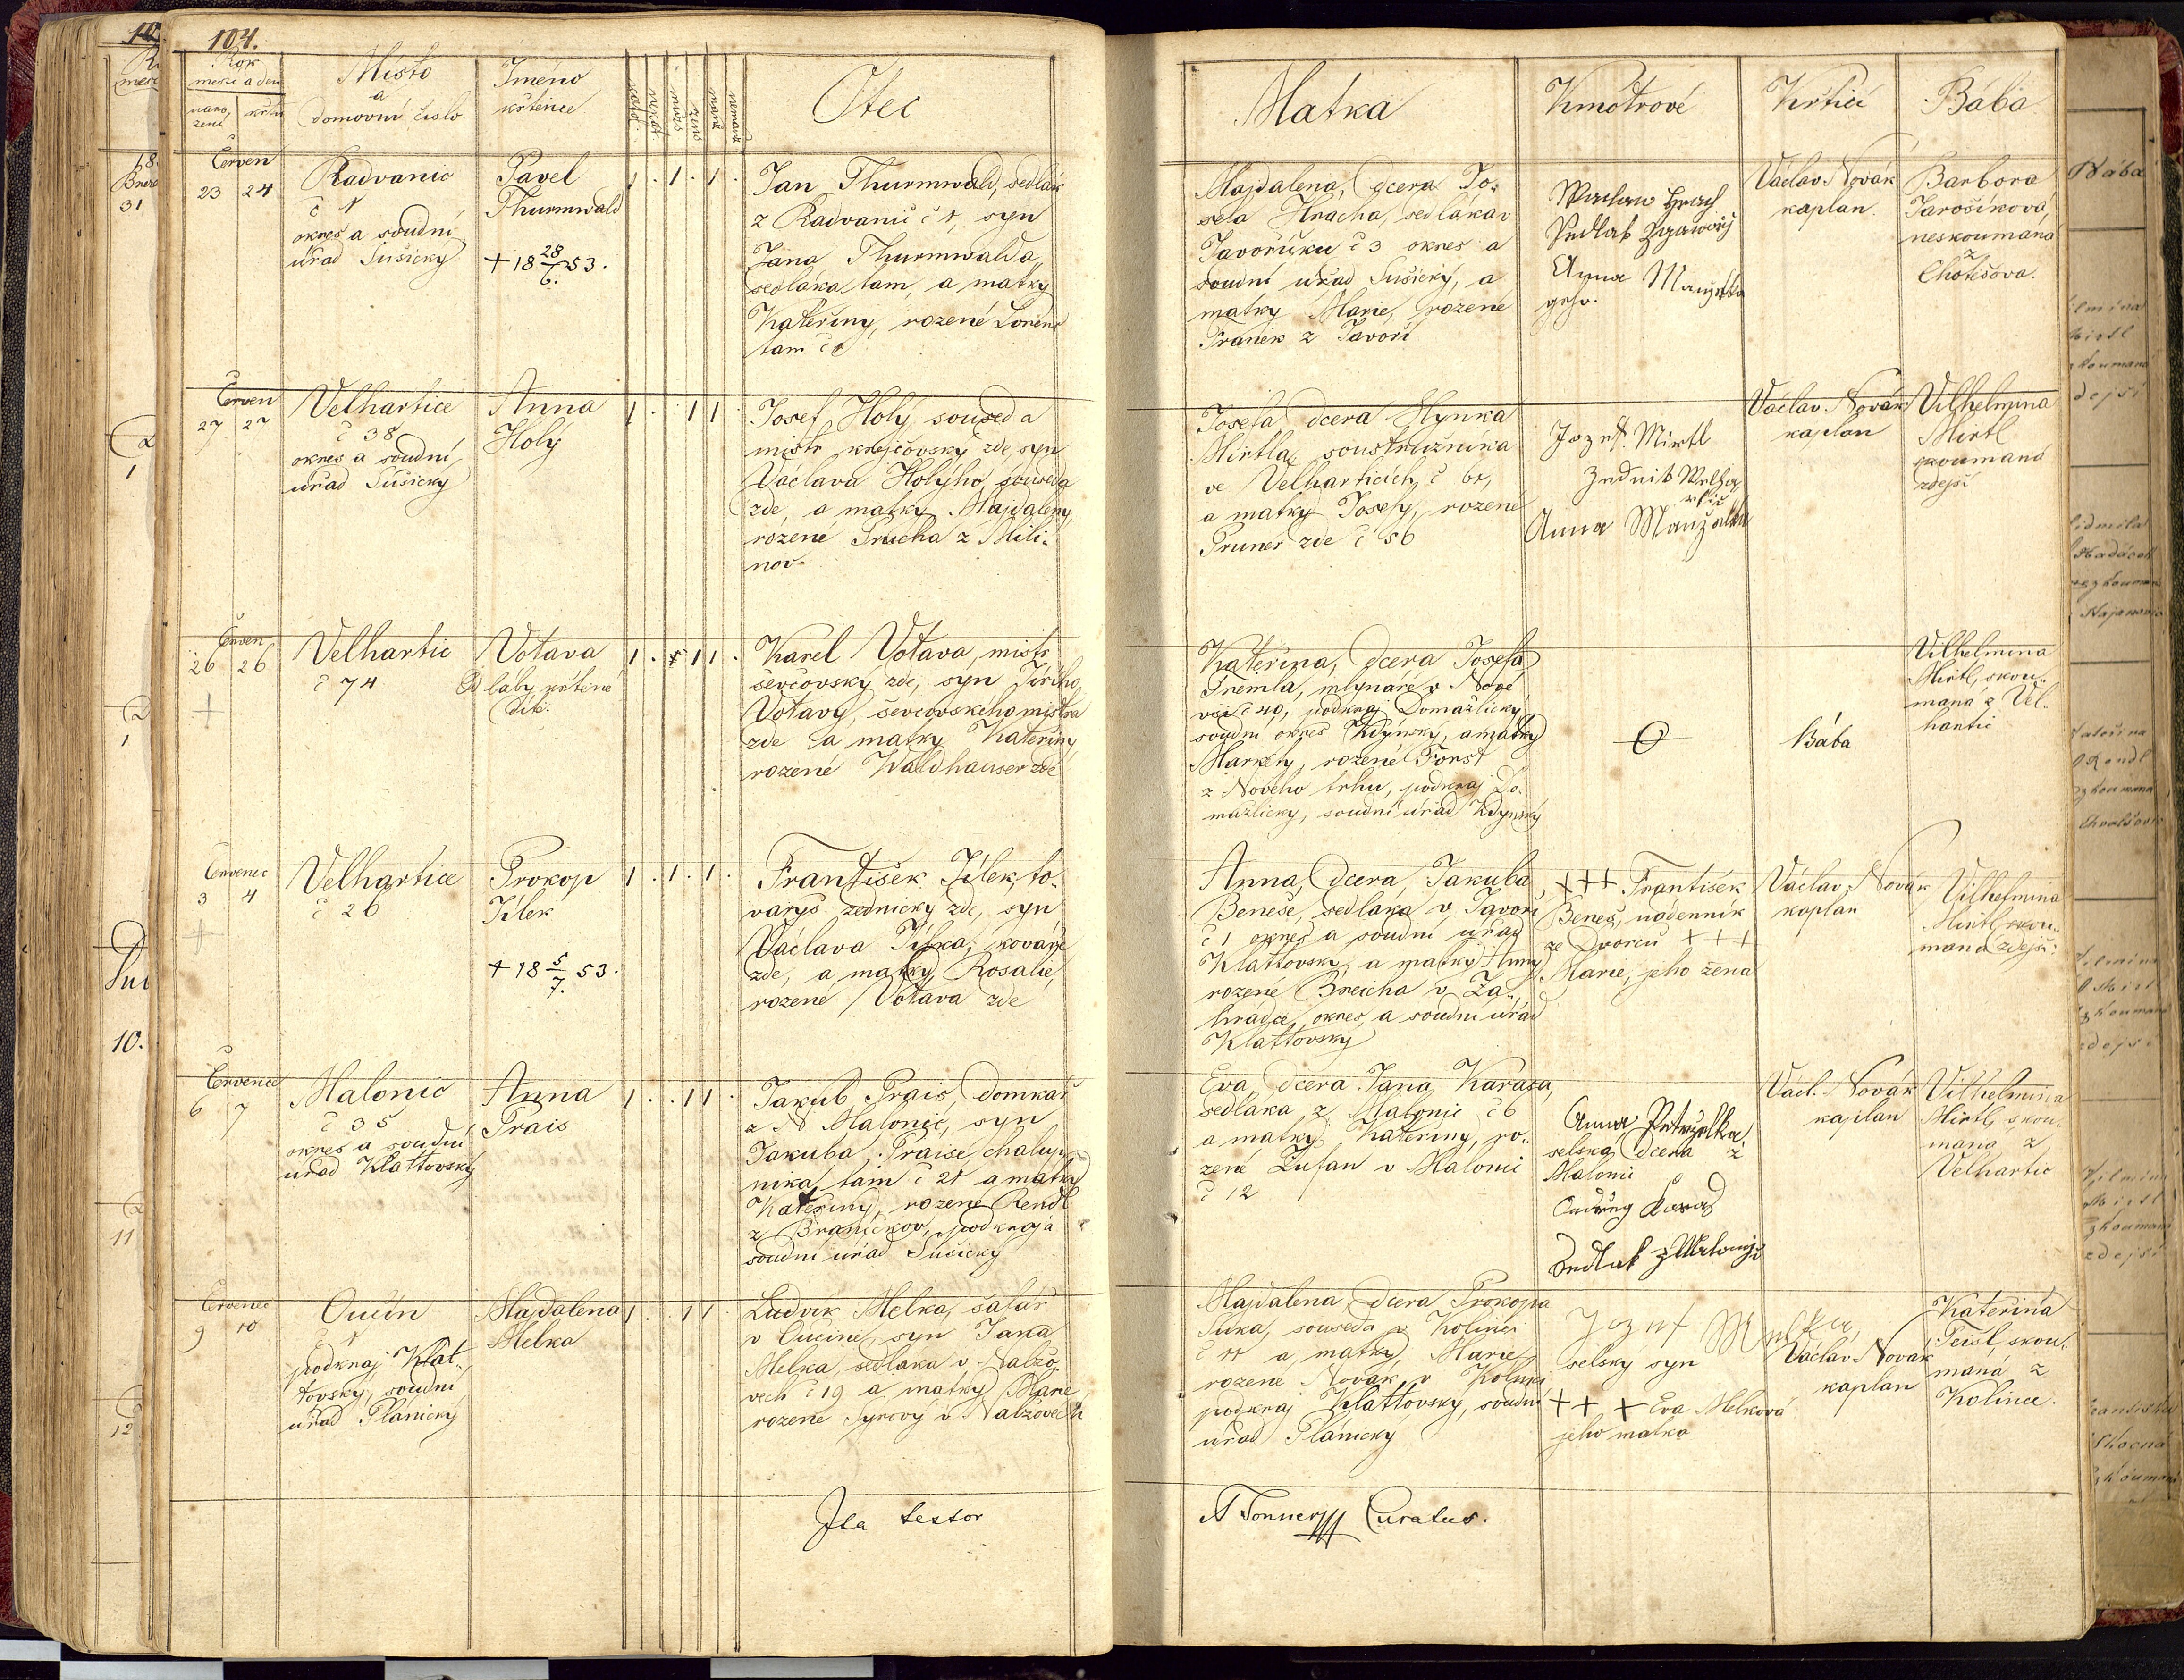 104.
Rok
měsíc a den
naro,
zení
křtu
Místo
a
domovní číslo.
Jméno
křtěnce
Otec
Matka
Kmotrové
Křtící
Bába
Červen
23 24
Radvanic
č 1
okres a soudní
úřad Sušický
Pavel
Thurmwald
+ 18 28/6. 53.
1 . 1 . 1 .
Jan Thurmwald, sedlák
z Radvanic č 1, syn
Jana Thurmwalda,
sedláka tam, a matky
Kateřiny, rozené Lorenc
tam č 1
Majdalena, dcera Jo-
sefa Hracha, sedláka v
Javoříčku č 3 okres a
soudní úřad Sušický, a
matky Marie, rozené
Franěk z Javoří
Anna
Václav Novák
kaplan.
Barbora
Jarošíková,
neskoumaná
z
Chotěšova.
Červen
27 27
Velhartice
č 38
okres a soudní
úřad Sušický
Anna
Holý
1 . . 1 1 .
Josef Holý, soused a
mistr krejčovský zde, syn
Václava Holýho, souseda
zde, a matky Majdaleny,
rozené Srucha z Mili-
nov.
Josefa, dcera Hynka
Mirtla, soustružníka
ve Velharticích, č 61,
a matky Josefy, rozené
Pruner zde č 56
Jozef. Mirtl
Anna
Václav Novák
kaplan
Vilhelmina
Mirtl
skoumaná
zdejší
Červen
26 26
+
Velhartic
č 74
Votava
Od báby křtěné
dítě.
1 . 1 1 .
Karel Votava, mistr
ševčovský zde, syn Jiřího
Votavy, ševcovského mistra
zde a matky Kateřiny,
rozené Waldhauser zde
Kateřina, dcera Josefa
Tremla, mlynáře v Nové
vsi č 40, podkraj Domažlický
soudní okres Kdýnský, a matky
Markety, rozené Forst
z Nového trhu, podkraj Do-
mažlický, soudní úřad Kdynský
Bába
Vilhelmina
Mirtl, skou-
maná z Vel-
hartic
Červenec
3 4
+
Velhartice
č 26
Prokop
Jílek
+ 18 5/7. 53.
1 . 1 . 1 .
František Jílek, to-
varyš zednický zde, syn
Václava Jílka, kováře
zde, a matky Rosalie,
rozené Votava zde
Anna, dcera Jakuba
Beneše, sedláka v Javoří
č 1 okres a soudní úřad
Klattovský, a matky Anny
rozené Breicha v Za-
hrádce, okres a soudní úřad
Klattovský
+++ František
Beneš, nádenník
ze Dvorců +++
Marie, jeho žena
Václav Novák
kaplan
Vilhelmina
Mirtl, skou-
maná zdejší.
Červenec
6 7
Malonic
č 35
okres a soudní
úřad Klattovský
Anna
Prais
1 . . 1 1 .
Jakub Prais, domkář
z Malonic, syn
Jakuba Praise, chalup-
níka tam č 21 a matky
Kateřiny, rozené Rendl
z Braníčkov, podkraj a
soudní úřad Sušický
Eva, dcera Jana Karasa,
sedláka z Malonic č 6
a matky Kateřiny, ro-
zené Žufan v Malonici
č 12
Anna
selská dcera z
Malonic
Václ. Novák
kaplan
Vilhelmina
Mirtl, skou-
maná z
Velhartic
Červenec
9 10
Oučín
č 1
podkraj Klat-
tovský, soudní
úřad Plánický
Majdalena
Melka
1 . . 1 1 .
Ludvík Melka, šafář
v Oučíně, syn Jana
Melka, sedláka v Nalžo-
vech č 19 a matky Marie
rozené Syrový v Nalžovech
Majdalena, dcera Prokopa
Suka, souseda v Kolinci
č 11 a matky Marie
rozené Novák v Kolinci
podkraj Klattovský, soudní
úřad Plánický
Jozef Melka
selský syn
+ + + Eva Melková
jeho matka
Václav Novák
kaplan
Kateřina
Teisl, skou-
maná z
Kolince.
Ita testor
Tonner Curatus.